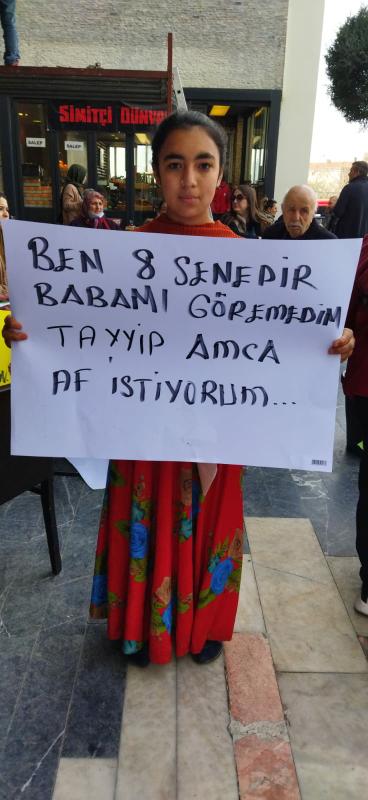 SiMiTÇi DÜNYA
SALEP
SALEP
BEN 8 SENEDİR
BABAMI GÖREMEDİM
TAYYİP AMCA
AF İSTİYORUM...